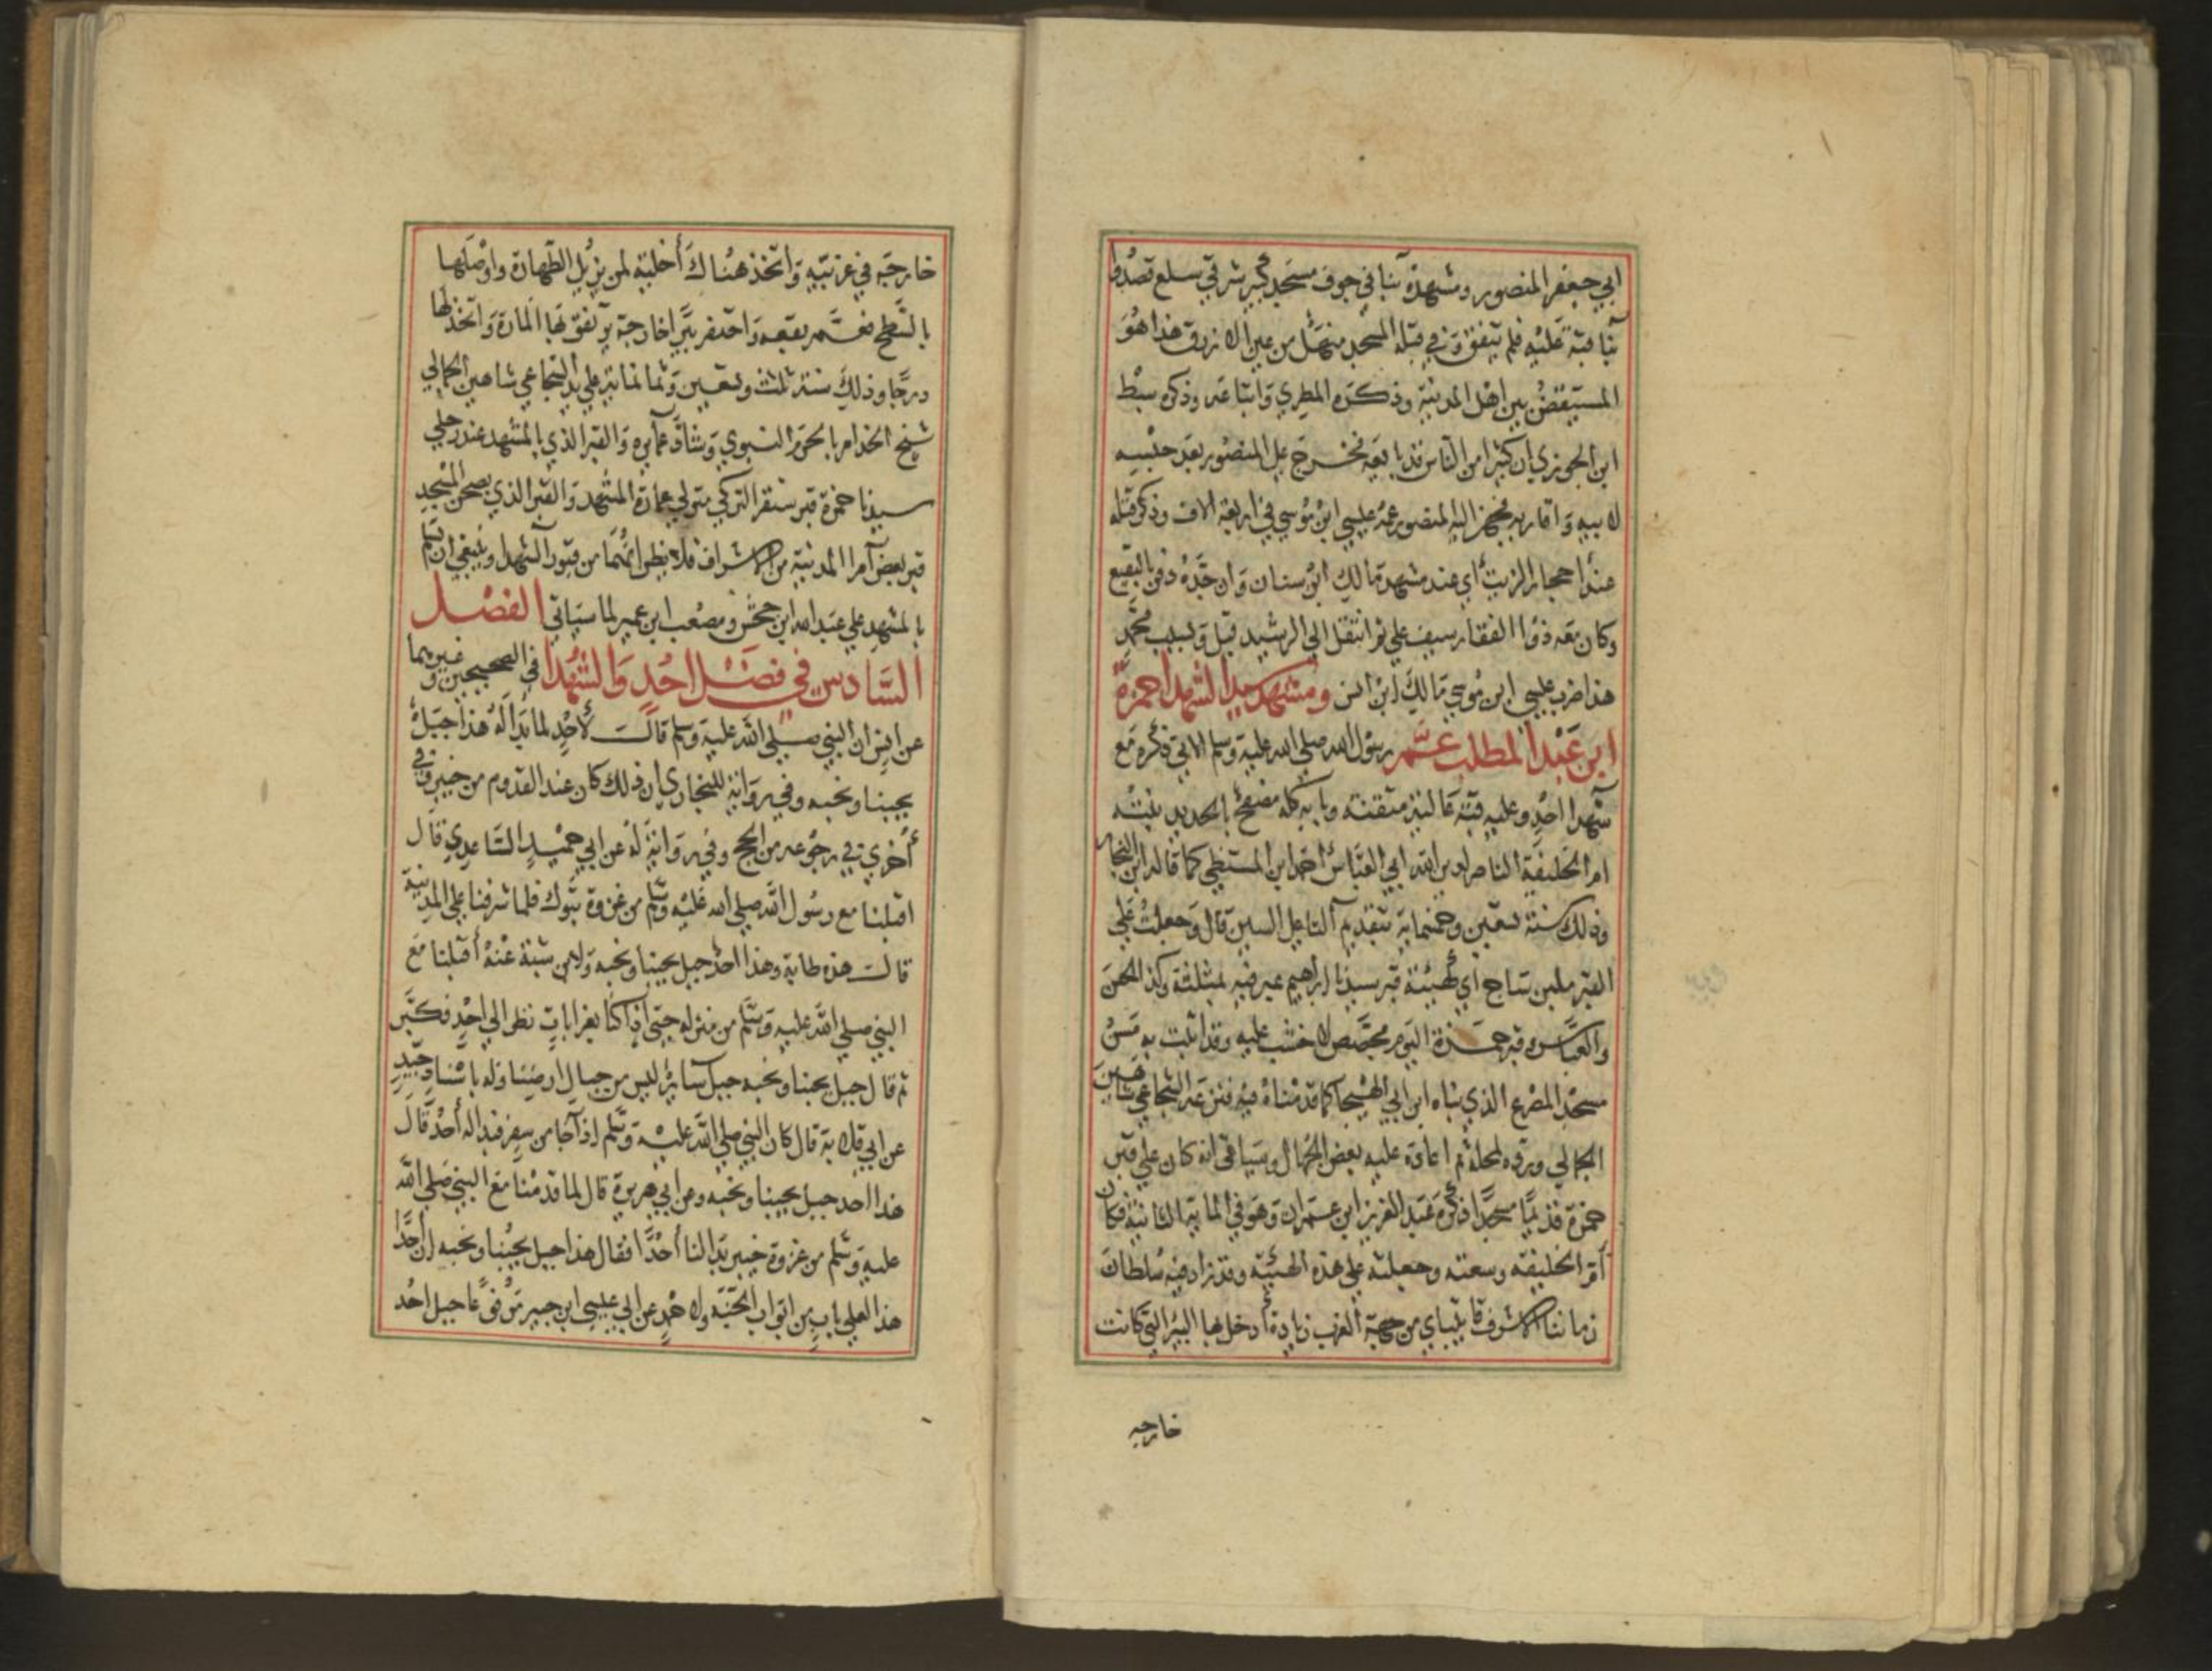 ابي جعفر المنصور ومشهده بنافي جوف مسجد كبير شرقي سلع قصدوا
بنا قبة عليه فلم يتفق وفي قبلة المسجد منهل من عين الازرق هذا هو
المستفيض بين اهل المدينة وذكره المطري واتباعه وذكر سبط
ابن الجوزي ان كثيرا من الناس قد بايعه فخرج علي المنصور بعد حبسه
لابيه واقاربه فجهز اليه المنصور عمه عيسي ابن موسي في اربعة الاف وذكر قتله
عند احجار الزيت أي عند مشهد مالك ابن سنان وان جده دفن بالبقيع
وكان معه ذوا الفقار سيف علي ثم انتقل الي الرشيد قيل وبسبب محمد
هذا ضرب عيسي ابن موسي مالك ابن انس ومشهد سيد الشهدا حمزة
ابن عبد المطلب عم رسول الله صلي الله عليه وسلم الاتي ذكره مع
شهدا احد وعليه قبة عالية متقنة وبابه كله مصفح بالحديد بنته
ام الخليفة الناصر لدين الله ابي العباس احمد ابن المستضي كما قاله ابن النجار
وذلك سنة تسعين وخمسماية بتقديم التا علي السين قال وجعلت علي
القبر ملبن ساج أي كهيئة قبر سيدنا ابراهيم عبر فيه بمثلثة وكذا الحسن
والعباس وقبر حمزة اليوم مجصص لا خشب عليه وقد اثبت به مسن
مسجد المصرع الذي بناه ابن ابي الهيجا كما قدمناه فيه فنزعه الشجاعي شاهين
الجمالي ورده لمحله ثم اعاده عليه بعض الجهال وسياتي انه كان علي قبر
حمزة قديما مسجدا ذكره عبد العزيز ابن عمران وهو في الماية الثانية فكان
أم الخليفة وسعته وجعلته علي هذه الهيئة وقد زاد فيه سلطان
زماننا الاشرف قايتباي من جهة الغرب زيادة أدخل بها البير التي كانت
خارجه
خارجه في غربيه واتخذ هناك أخلية لمن يريد الطهارة واوصلها
بالسطح فعم نفعه واحتفر بيرا خارجه يرتفق بها المارة واتخذ لها
درجا وذلك سنة ثلث وتسعين وثمانماية علي يد الشجاعي شاهين الجمالي
شيخ الخدام بالحرم النبوي وشاد عمايره والقبر الذي بالمشهد عند رجلي
سيدنا حمزة قبر سنقر التركي متولي عمارة المشهد والقبر الذي بصحن المسجد
قبر بعض أمرا المدينة من الاشراف فلا يظن انهما من قبور الشهدا وينبغي ان يسلم
بالمشهد علي عبد الله ابن جحش ومصعب ابن عمير لما سياتي الفصل
السادس في فضل احد والشهدا في الصحيحين وغيرهما
عن انس ان النبي صلي الله عليه وسلم قال لأحد لما بدا له هذا جبل
يحبنا ونحبه وفي رواية للبخاري ان ذلك كان عند القدوم من خيبر وفي
أخري في رجوعه من الحج وفي رواية له عن ابي حميد الساعدي قال
اقبلنا مع رسول الله صلي الله عليه وسلم من غزوة تبوك فلما شرفنا علي المدينة
قال هذه طابة وهذا احد جبل يحبنا ونحبه ولابن شبة عنه أقبلنا مع
النبي صلي الله عليه وسلم من منزله حتي إذا كنا بغرابات نظر الي احد فكبر
ثم قال جبل يحبنا ونحبه جبل ساير ليس من جبال ارضنا وله باسناد جيد
عن ابي قلابة قال كان النبي صلي الله عليه وسلم إذا جا من سفر فبدا له أحد قال
هذا احد جبل يحبنا ونحبه وعن ابي هريرة قال لما قدمنا مع النبي صلي الله
عليه وسلم من غزوة خيبر بدا لنا أحدا فقال هذا جبل يحبنا ونحبه إن أحدا
هذا لعلي باب من ابواب الجنة ولاحمد عن ابي عبيسي ابن جبير مرفوعا جبل احد